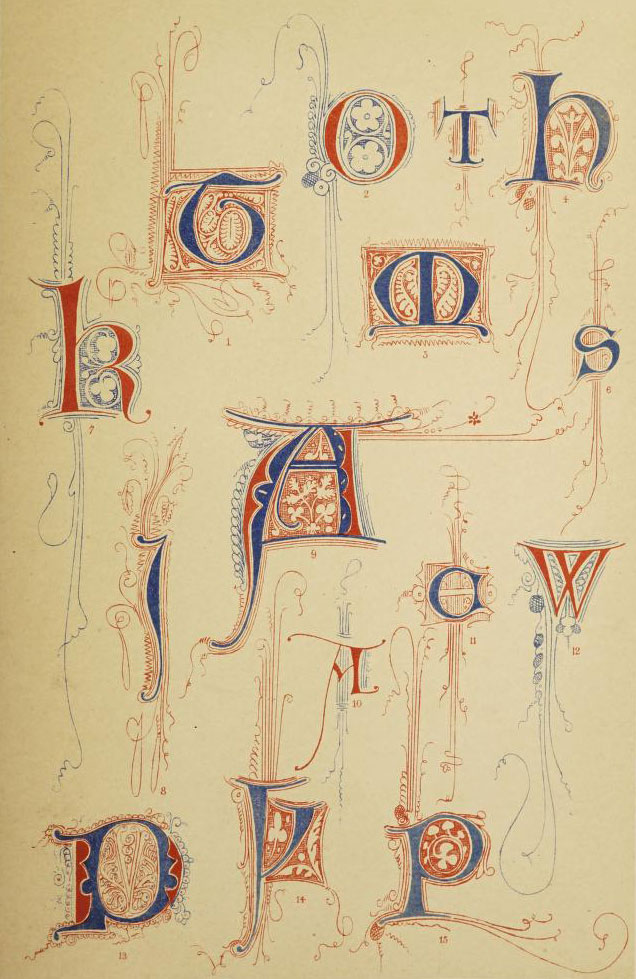 T O T h
2 3 4
M
1 5 S
k 6
7
A
9
I C W
11 12
10
8
P P
14
13 15